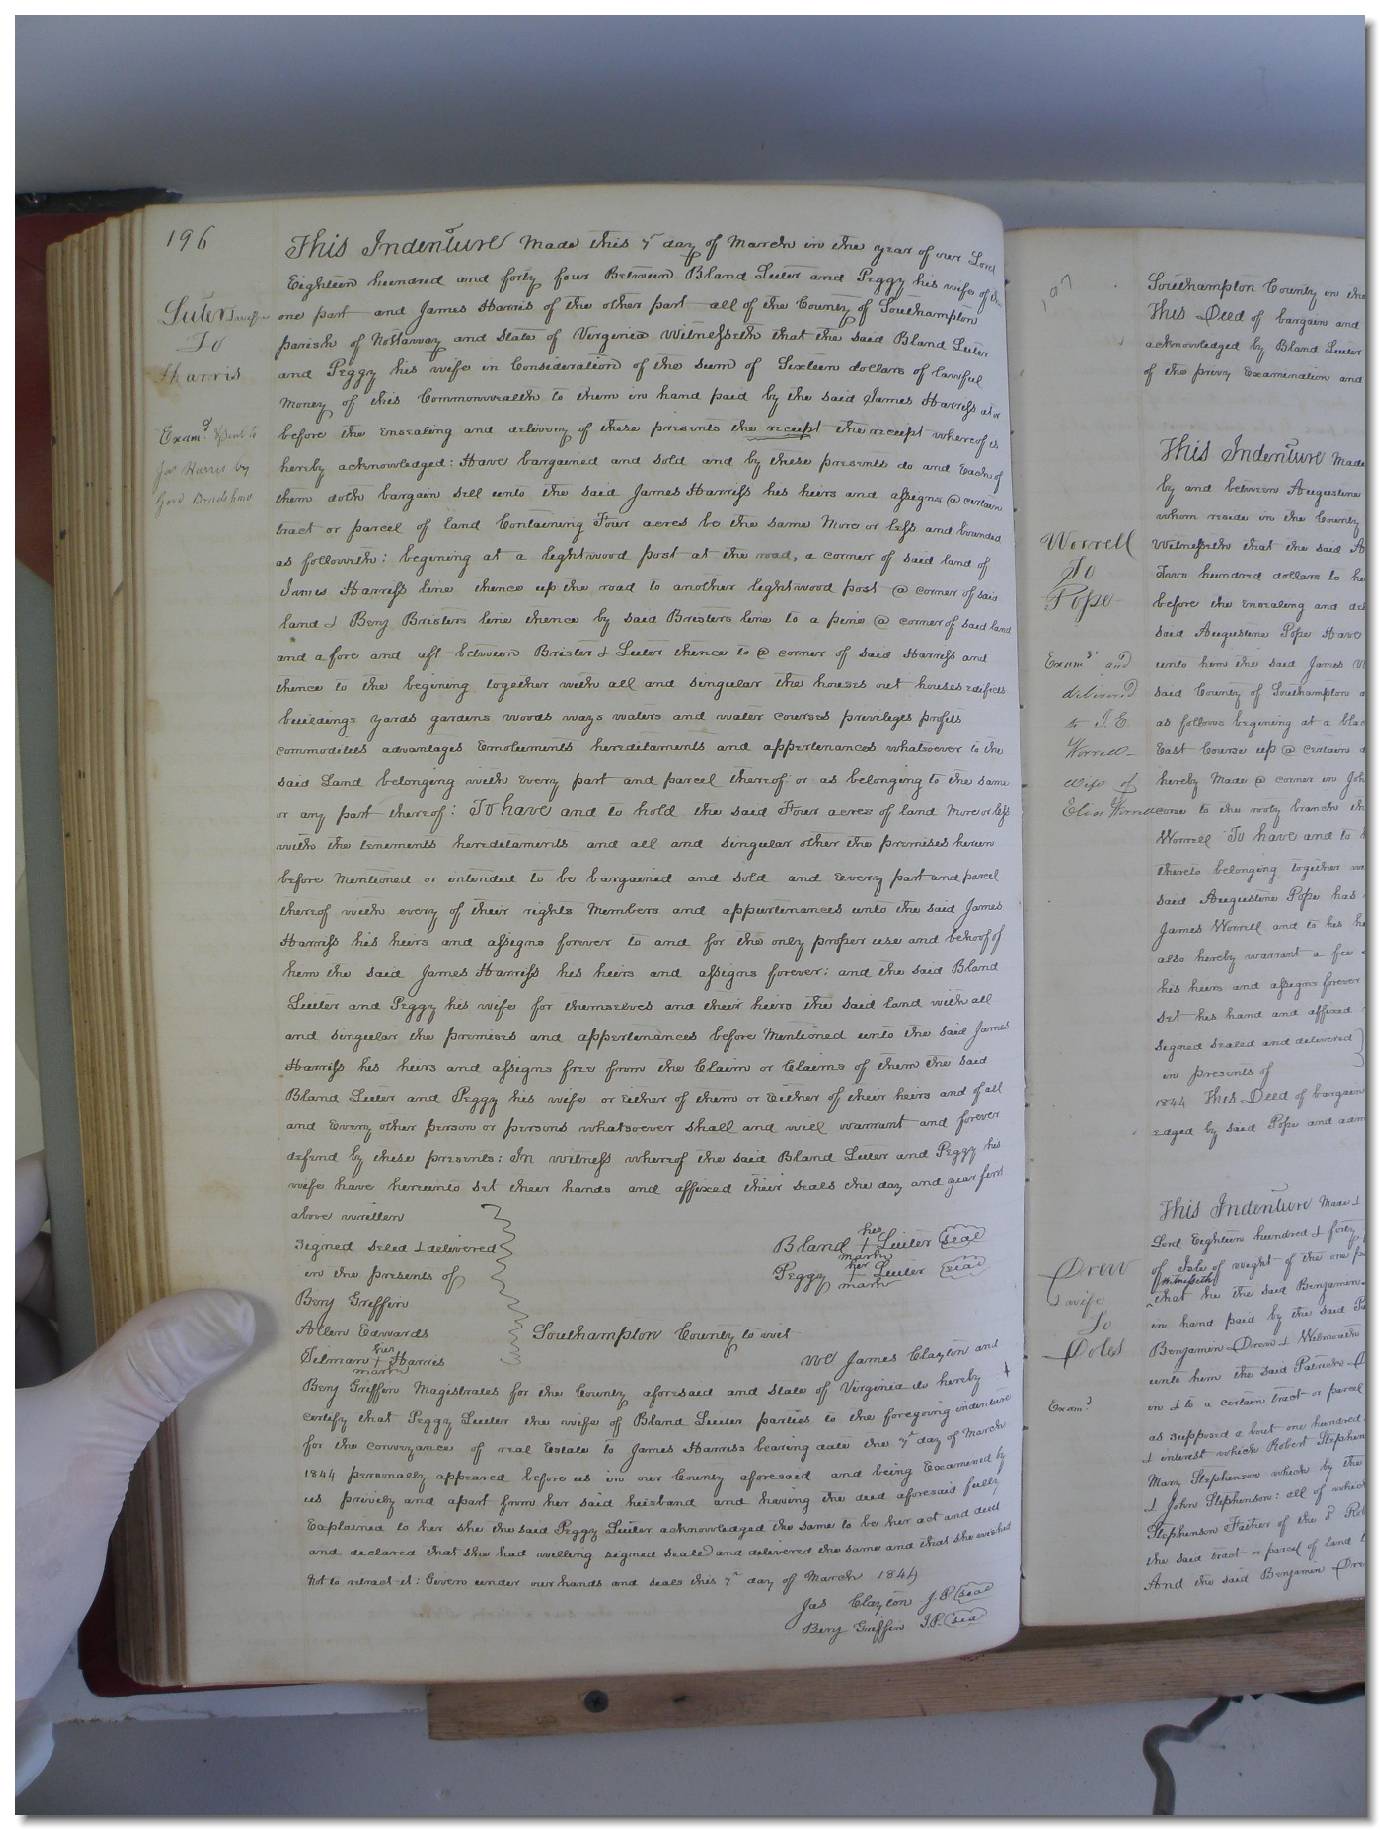 196
Suter & wife
To
Harris
Exam.d & sent to
Jas Harris by
This Indenture Made this 7th day of March in the year of our Lord
Eighteen hundred and forty four Between Bland Suiter and Peggy his wife of the
one part and James Harris of the other part all of the County of Southampton
parish of Nottaway and State of Virginia Witnesseth that the said Bland Suiter
and Peggy his wife in Consideration of the sum of Sixteen dollars of lawful
Money of this Commonwealth to them in hand paid by the said James Harriss at or
before the ensealing and delivery of these presents the receipt the receipt whereof is
hereby acknowledged: Have bargained and sold and by these presents do and Each of
them doth bargain sell unto the said James Harriss his heirs and assigns @ certain
tract or parcel of land Containing Four acres be the same More or less and bounded
as followith: begining at a lightwood post at the road, a corner of said land of
James Harriss line thence up the road to another lightwood post @ corner of said
land & Benj Bristers line thence by said Bristers line to a pine @ corner of said land
and a fore and aft between Brister & Suiter thence to @ corner of said Harriss and
thence to the begining together with all and singular the houses out houses edifices
buildings yards gardens woods ways waters and water courses privileges profits
commodities advantages Emoluments hereditaments and appertenances whatsoever to the
said Land belonging with Every part and parcel thereof or as belonging to the same
or any part thereof: To have and to hold the said Four acres of land More or less
with the tenements hereditaments and all and singular other the premises herein
before Mentioned or intended to be bargained and sold and Every part and parcel
thereof with every of their rights Members and appurtenances unto the said James
Harriss his heirs and assigns forever to and for the only proper use and behoof of
him the said James Harriss his heirs and assigns forever: and the said Bland
Suiter and Peggy his wife for themselves and their heirs the said land with all
and singular the premises and appertenances before Mentioned unto the said James
Harriss his heirs and assigns free from the Claim or Claims of them the said
Bland Suiter and Peggy his wife or Either of them or Either of their heirs and of all
and Every other person or persons whatsoever shall and will warrant and forever
defend by these presents: In witness whereof the said Bland Suiter and Peggy his
wife have hereunto set their hands and affixed their seals the day and year first
above written
Signed seled & delivered
in the presents of
Benj Griffin
Allen Edwards
her
Selman + Harris
mark
his
Bland + Suiter seal
mark
her
Peggy + Suiter seal
mark
Southampton County to wit
We James Clayton and
Benj Griffin Magistrates for the County aforesaid and State of Virginia do hereby
certify that Peggy Suiter the wife of Bland Suiter parties to the foregoing indenture
for the conveyance of real Estate to James Harriss bearing date the 7th day of March
1844 personally appeared before us in our County aforesaid and being Examined by
us privily and apart from her said husband and having the deed aforesaid fully
Explained to her she the said Peggy Suiter acknowledged the same to be her act and deed
and declared that she had willing signed sealed and delivered the same and that she wished
Not to retract it: Given under our hands and seals this 7th day of March 1844
Jas Clayton J.P. seal
Benj Griffin J.P. seal
197
Southampton County in the
This Deed of bargain and
acknowledged by Bland Suiter
of the privy Examination and
Worrell
To
Pope
Exam.d and
delivered
to J.E.
Worrell
wife of
Eliza Worrell
This Indenture Made
by and between Augustine
whom reside in the County
Witnesseth that the said A
Two hundred dollars to h
before the ensealing and de
said Augustine Pope Have
unto him the said James W
said County of Southampton a
as follows begining at a bla
East Course up @ certain
hereby Made @ corner in Joh
to the rooty branch th
Worrell To have and to
thereto belonging together w
said Augustine Pope has
James Worrell and to his h
also hereby warrant a fee
his heirs and assigns forever
Set his hand and affixed
Signed sealed and delivered
in presents of
1844 This Deed of bargain
edged by said Pope and
Drew
& wife
To
Doles
Exam.d
This Indenture Made &
Lord Eighteen hundred & forty
of Isle of wight of the one p
Witnesseth
that he the said Benjamin
in hand paid by the said Pa
Benjamin Drew &
unto him the said Patrick D
in & to a certain tract or parcel
as supposed a bout one hundred
& interest which Robert Stephen
Mary Stephenson which by the
& John Stephenson: all of which
Stephenson Father of the sd Ro
the said tract or parcel of land
And the said Benjamin Dre